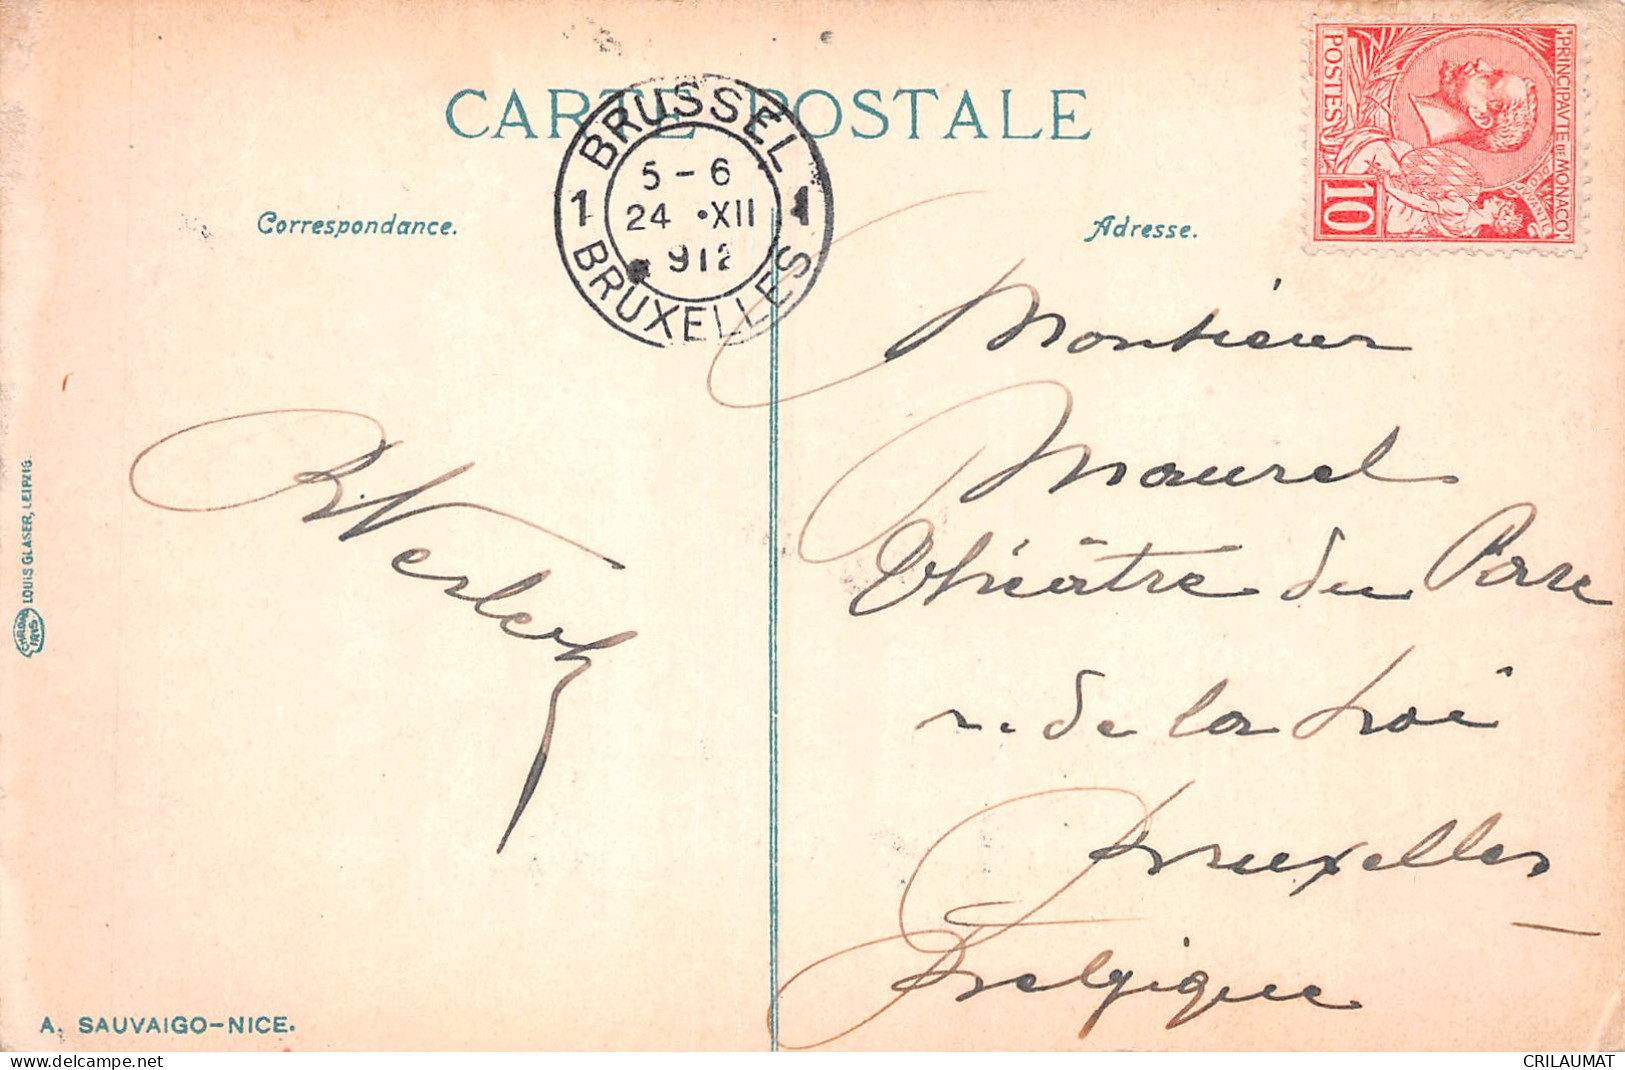 CARTE POSTALE
BRUSSEL
1 1
5 - 6
24 • XII
912
BRUXELLES
PRINCIPAVTE DE MONACO
POSTES
10
Correspondance.
Adresse.
Monsieur
Maurel
Théâtre du Parc
r. de la Loi
Bruxelles
Belgique
LOUIS GLASER, LEIPZIG.
A. SAUVAIGO-NICE.
www.delcampe.net
CRILAUMAT